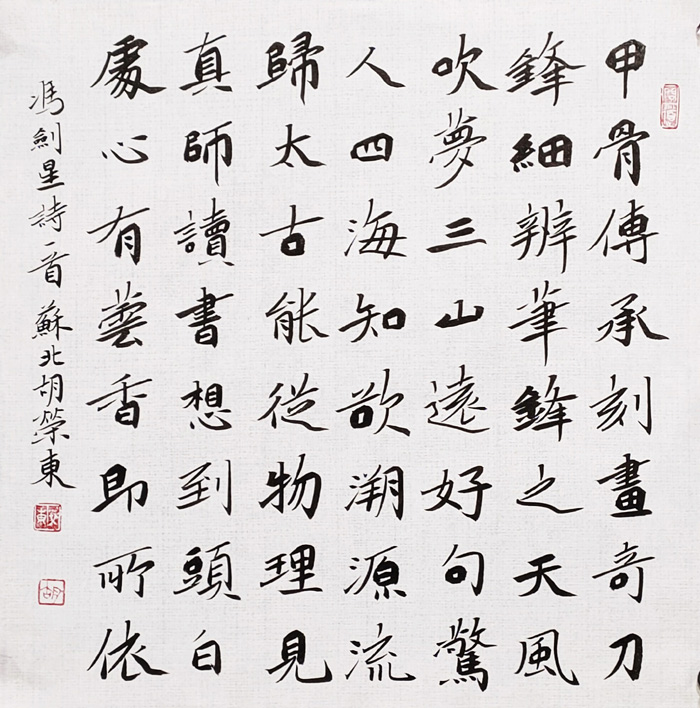 甲骨傳承刻畫奇刀
鋒細辨筆鋒之天風
吹夢三山遠好句驚
人四海知欲溯源流
歸太古能從物理見
真師讀書想到頭白
處心有芸香即所依
馮劍星詩一首蘇北胡榮東
胡